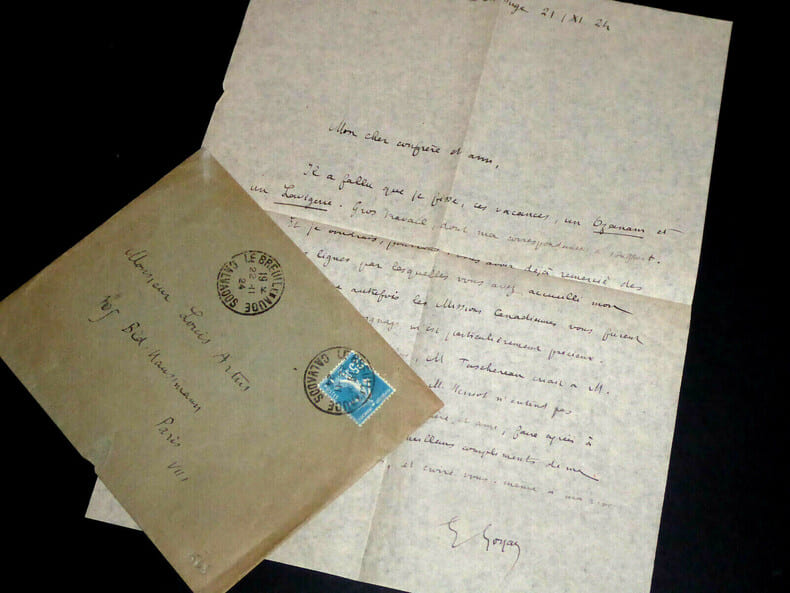 21/XI 24
Mon cher confrère et ami,
Il a fallu que je fisse, ces vacances, un Ozanam et
un Lavigerie. Gros travail, dont ma correspondance a souffert.
Et je voudrais, vous avoir déjà remercié des
lignes par lesquelles vous avez accueilli mon
autrefois les Missions Canadiennes vous furent
m'est particulièrement précieux.
M. Taschereau mais à M.
M.
n'eurent pas
et ami, faire agréer à
meilleurs compliments de
et croire vous-même à
G Goyau
LE BREUIL EN AUGE
19
22-11
24
CALVADOS
Monsieur Louis Artus
Bld Haussmann
Paris
VIII
25
CALVADOS